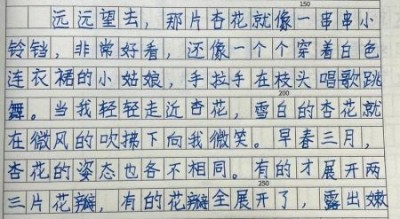 150
远远望去，那片杏花就像一串串小
铃铛，非常好看，还像一个个穿着白色
连衣裙的小姑娘，手拉手在枝头唱歌跳
舞。当我轻轻走近杏花，雪白的杏花就
200
在微风的吹拂下向我微笑。早春三月，
杏花的姿态也各不相同。有的才展开两
三片花瓣，有的花瓣全展开了，露出嫩
250